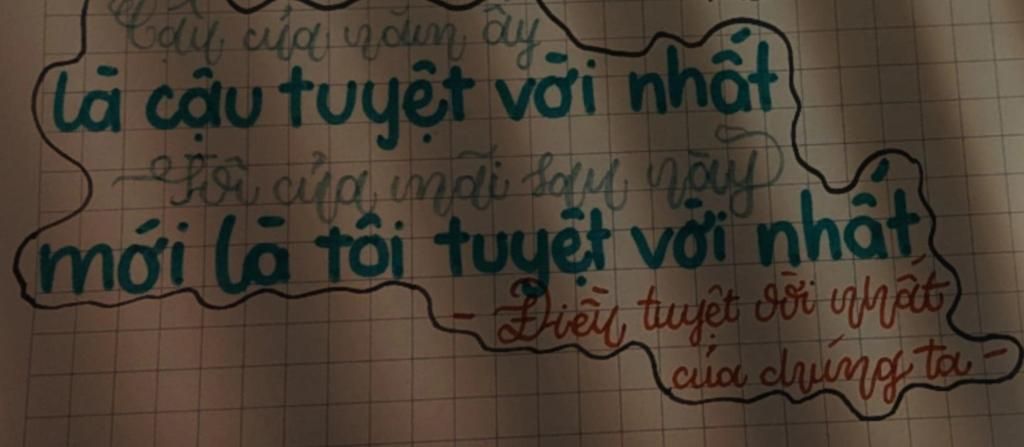 Cậu của năm ấy
là cậu tuyệt vời nhất
Tôi của mãi sau này
mới là tôi tuyệt vời nhất
- Điều tuyệt vời nhất
của chúng ta -